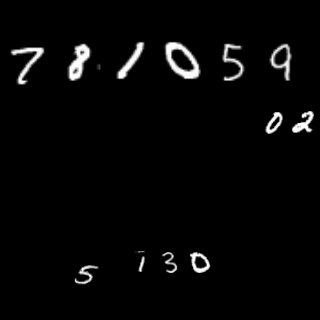 781059
02
5 130